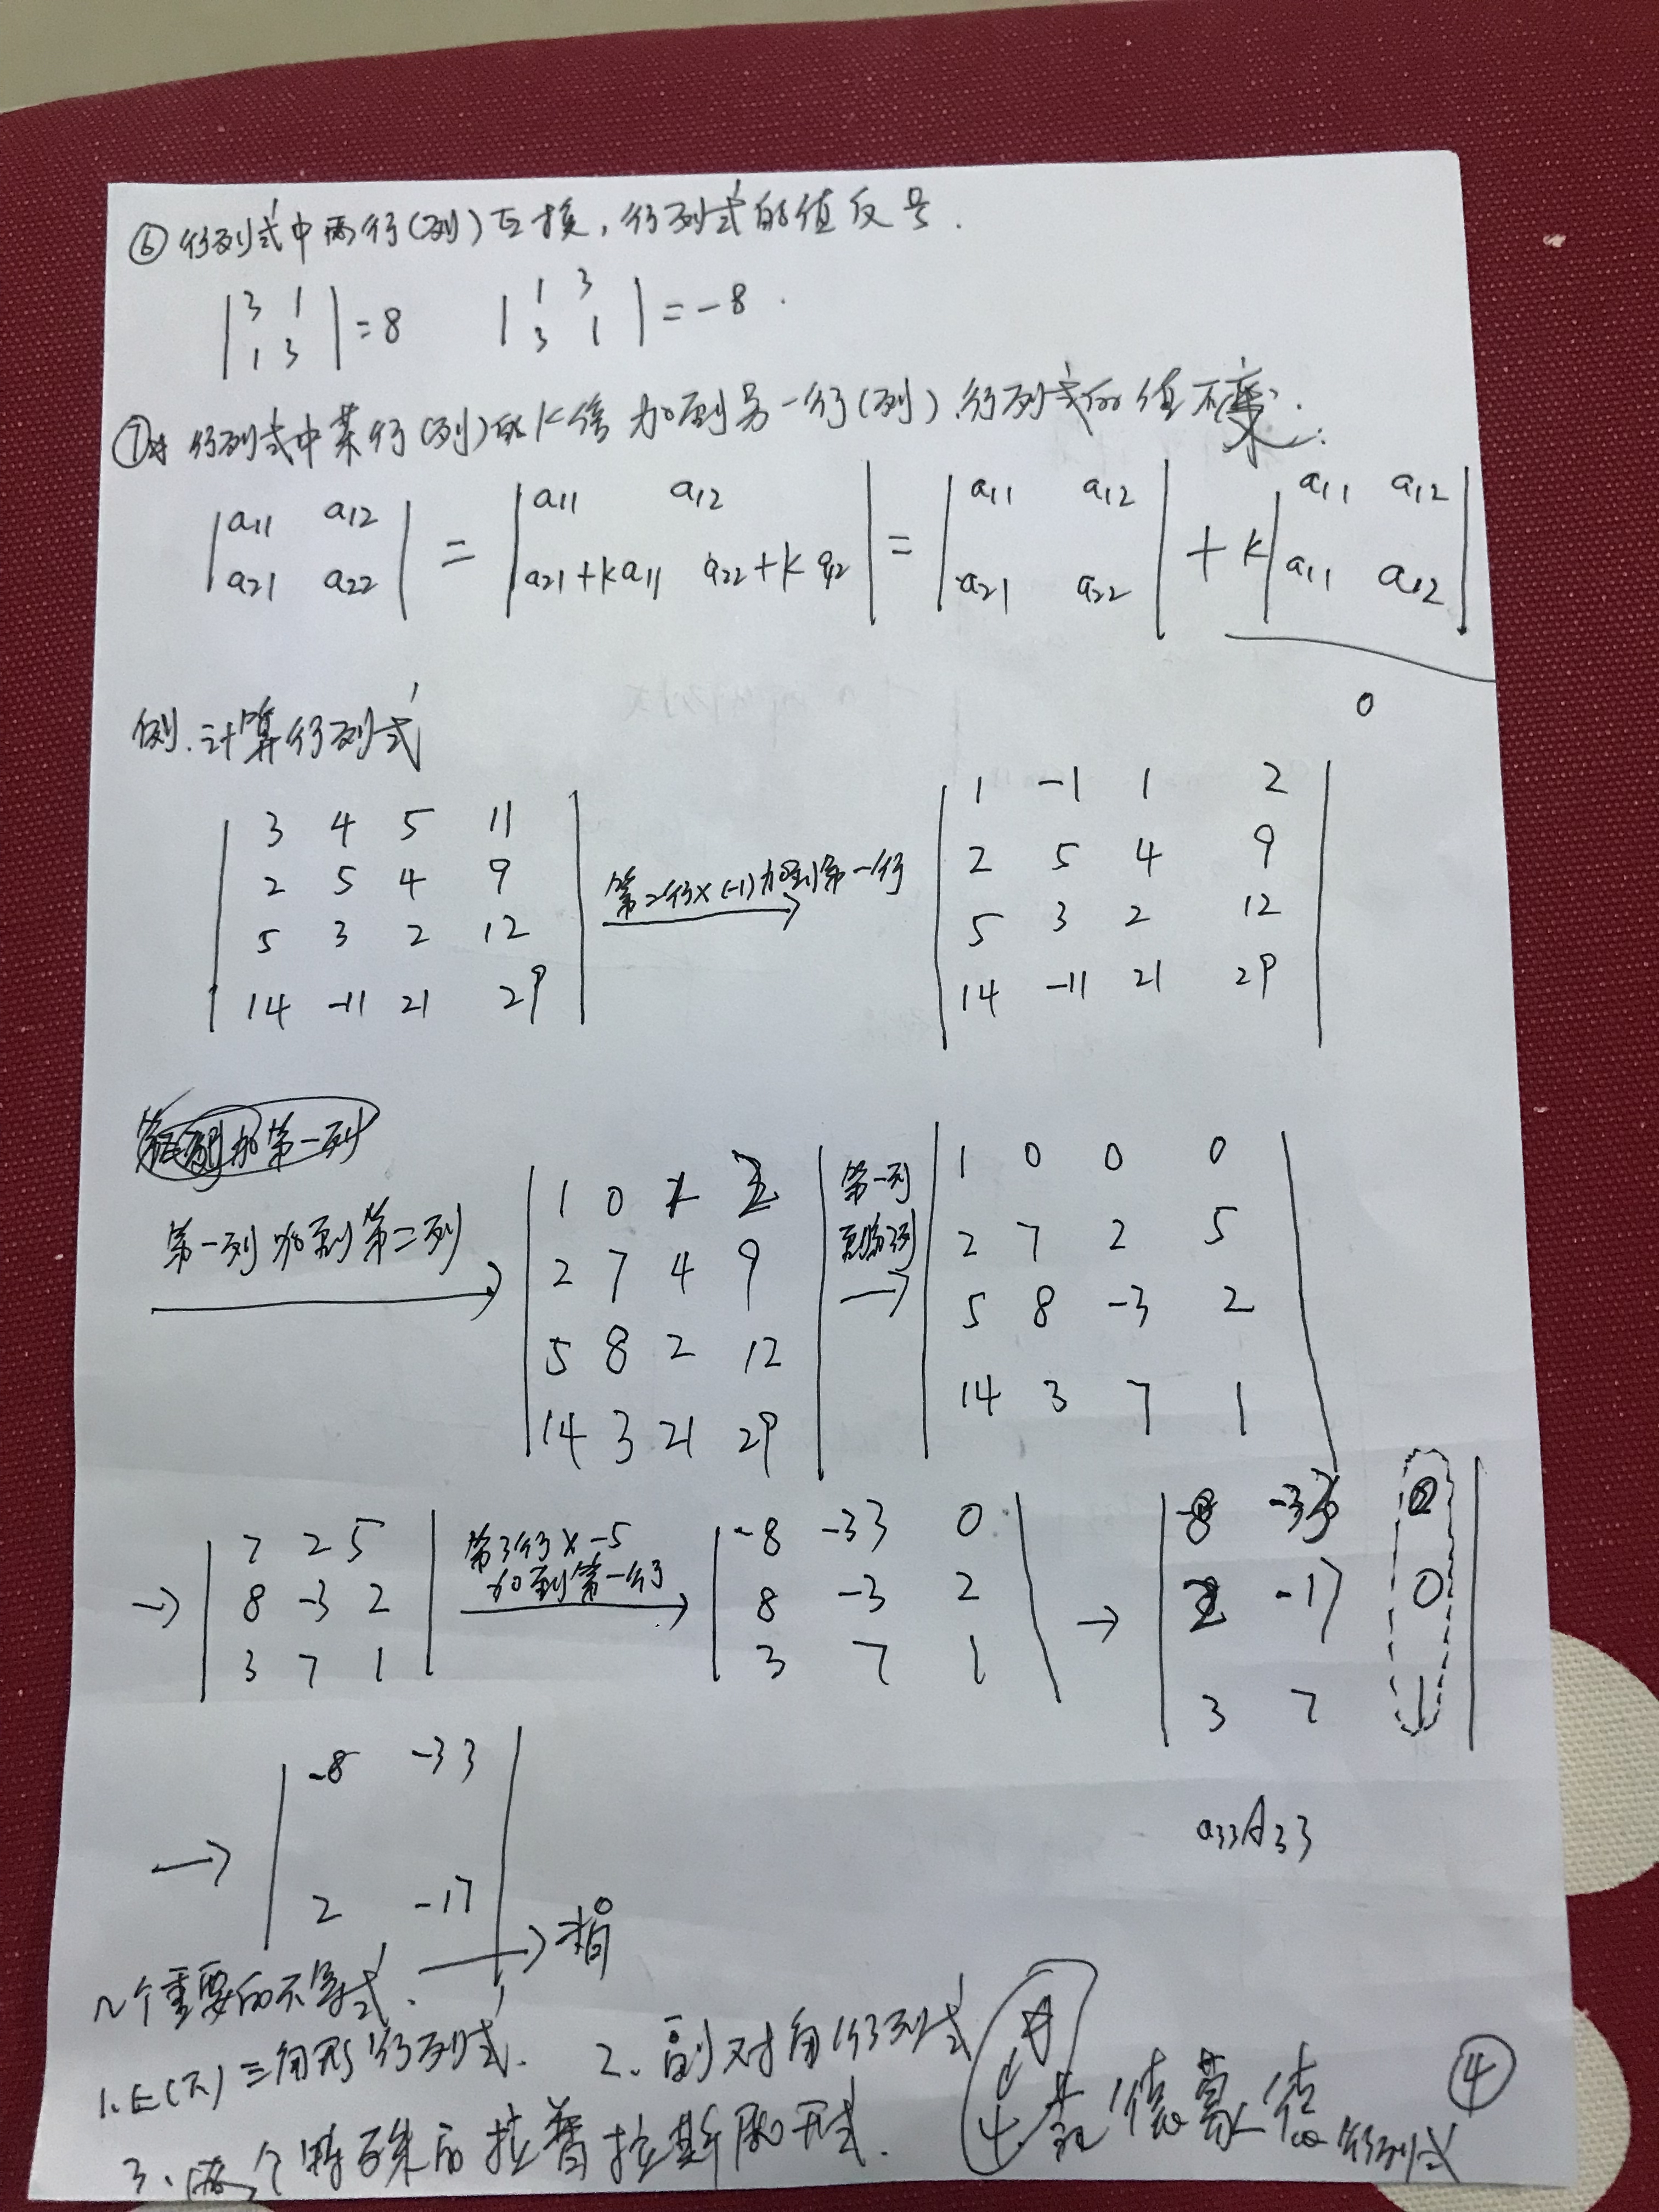 ⑥ 行列式中两行(列)互换,行列式的值反号.
|3 1| = 8 |1 3| = -8.
|1 3| |3 1|
⑦ 行列式中某行(列)的K倍加到另一行(列),行列式的值不变.
|a11 a12| = |a11 a12| = |a11 a12| + k|a11 a12|
|a21 a22| |a21+ka11 a22+ka12| |a21 a22| |a11 a12|
0
例.计算行列式
3 4 5 11
2 5 4 9
5 3 2 12
14 -11 21 29
第2行×(-1)加到第一行
1 -1 1 2
2 5 4 9
5 3 2 12
14 -11 21 29
第一列加到第二列
1 0 1 2
2 7 4 9
5 8 2 12
14 3 21 29
第一列
到第3列
1 0 0 0
2 7 2 5
5 8 -3 2
14 3 7 1
→
7 2 5
8 -3 2
3 7 1
第3行×-5
加到第一行
-8 -33 0
8 -3 2
3 7 1
→
-8 -33 0
2 -17 0
3 7 1
a33A33
→
-8 -33
2 -17
几个重要的不等式.
1.上(下)三角形行列式. 2.副对角行列式
3.两个特殊的拉普拉斯展开式. 4.范德蒙行列式
④